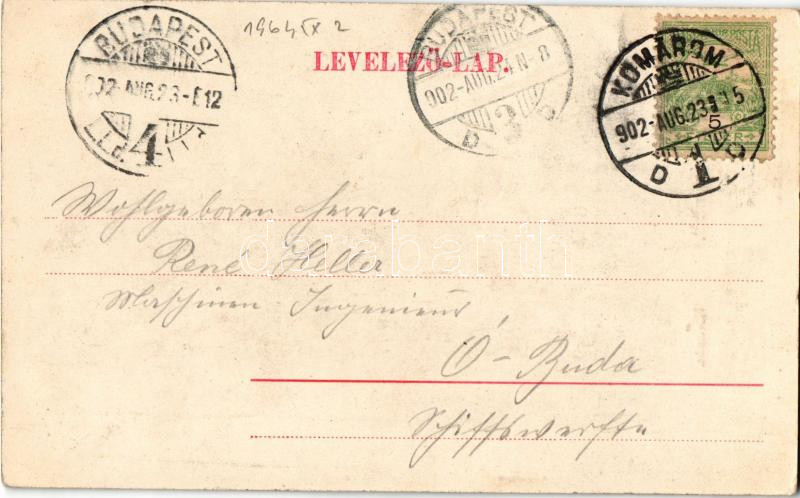 1964 IX 2
LEVELEZŐ-LAP.
BUDAPEST
902-AUG.23-É12
4
BUDAPEST
902-AUG.23 N-8
D 3
KOMÁROM
902-AUG.23
D 1
5
Wohlgeboren Herrn
René Heller
Maschinen-Ingenieur,
Ó-Buda
Schiffswerfte
darabanth